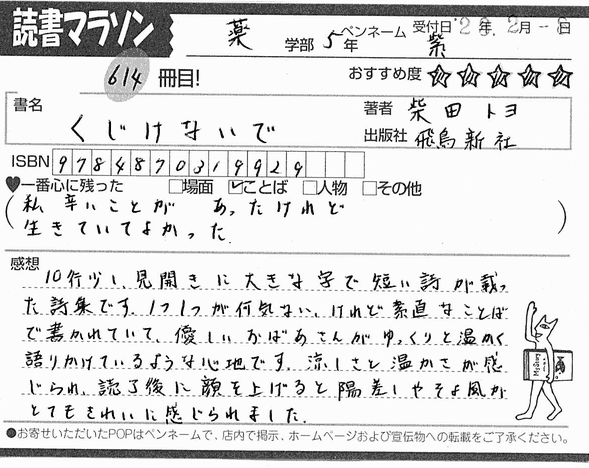 読書マラソン
薬学部5年 ペンネーム 紫 受付日'23年.2月-8日
614冊目!
おすすめ度 ☆☆☆☆☆
書名 くじけないで
著者 柴田トヨ
出版社 飛鳥新社
ISBN 9784870319929
♥一番心に残った □場面 ☑ことば □人物 □その他
(私 辛いことが あったけれど
生きていてよかった)
感想
10行少し、見開きに大きな字で短い詩が載っ
た詩集です。1つ1つが何気ない、けれど素直なことば
で書かれていて、優しいおばあさんがゆっくりと温かく
語りかけているような心地です。涼しさと温かさが感
じられ、読了後に顔を上げると陽差しやそよ風が
とてもきれいに感じられました.
●お寄せいただいたPOPはペンネームで、店内で掲示、ホームページおよび宣伝物への転載をご了承ください。